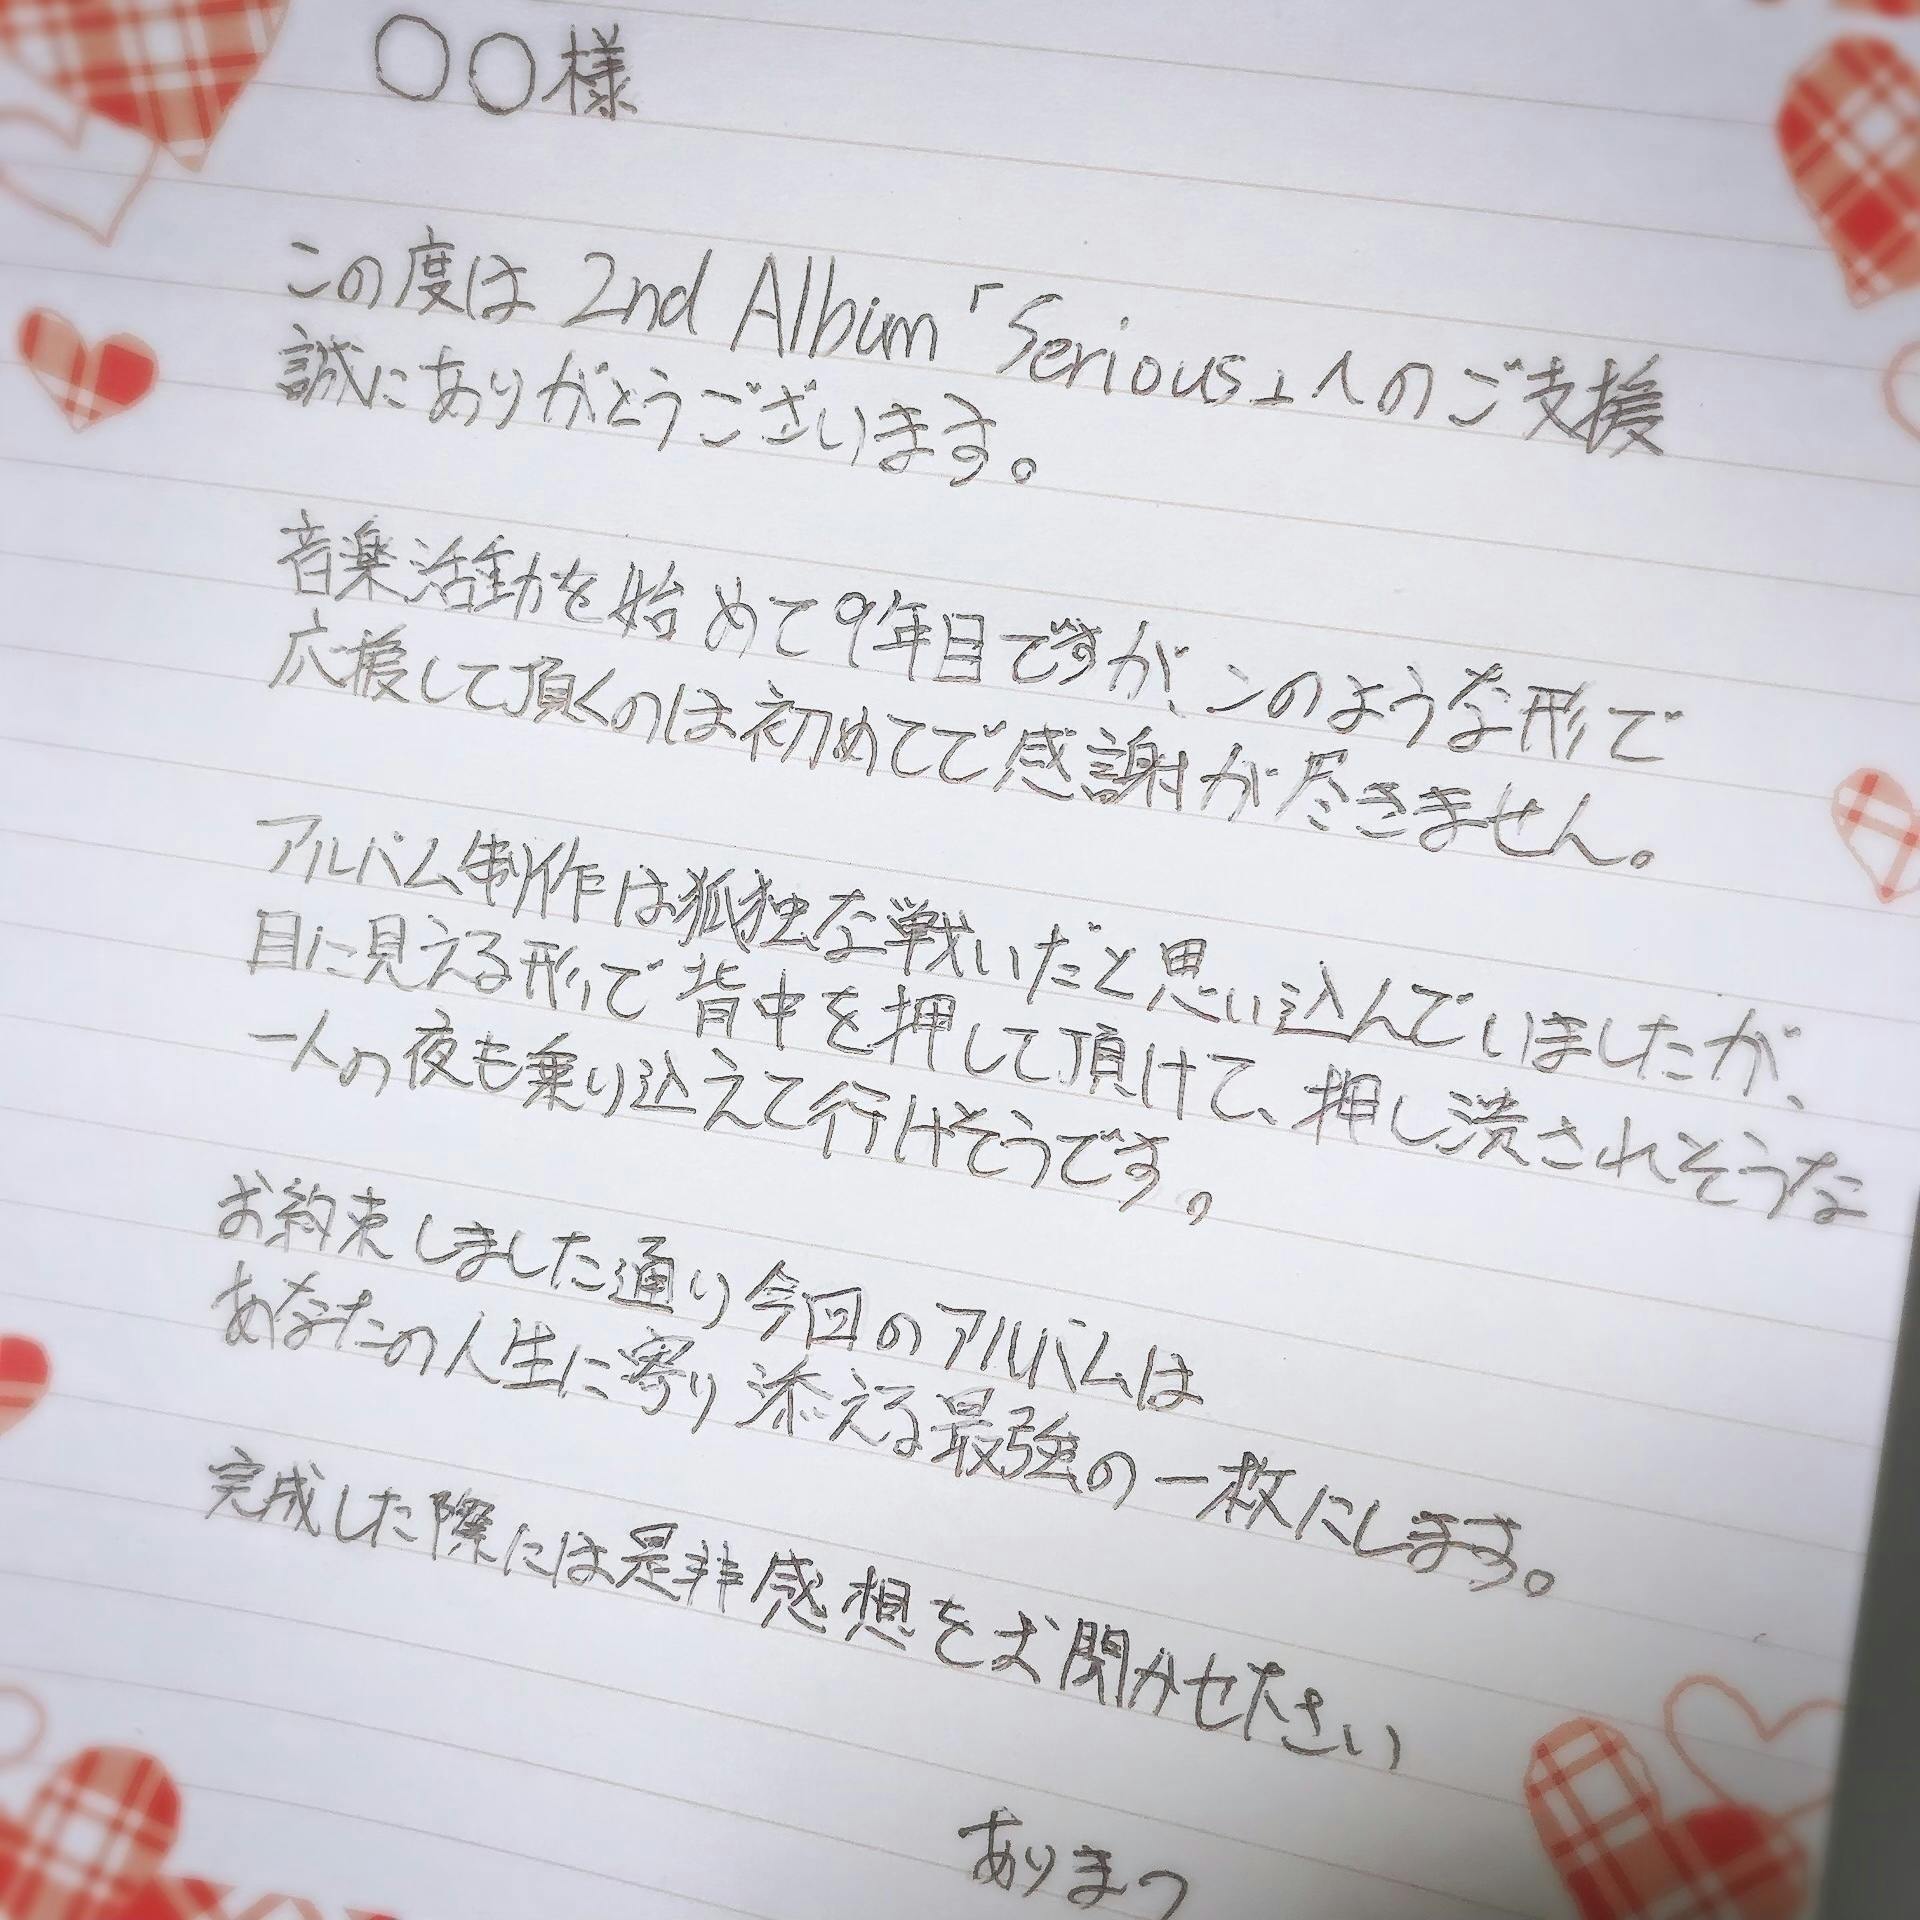 ○○様
この度は 2nd Album「Serious」へのご支援
誠にありがとうございます。
音楽活動を始めて9年目ですが、このような形で
応援して頂くのは初めてで感謝が尽きません。
アルバム制作は孤独な戦いだと思い込んでいましたが、
目に見える形で背中を押して頂けて、押し潰されそうな
一人の夜も乗り込えて行けそうです。
お約束しました通り今回のアルバムは
あなたの人生に寄り添える最強の一枚にします。
完成した際には是非感想をお聞かせ下さい
ありまつ